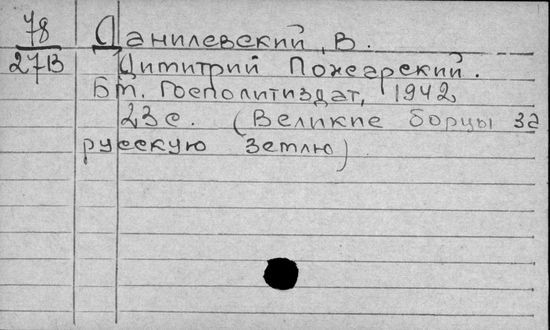 78 Данилевский, В.
2713 Димитрий Пожарский.
Бт. Госполитиздат, 1942
23с. (Великие борцы за
русскую землю)